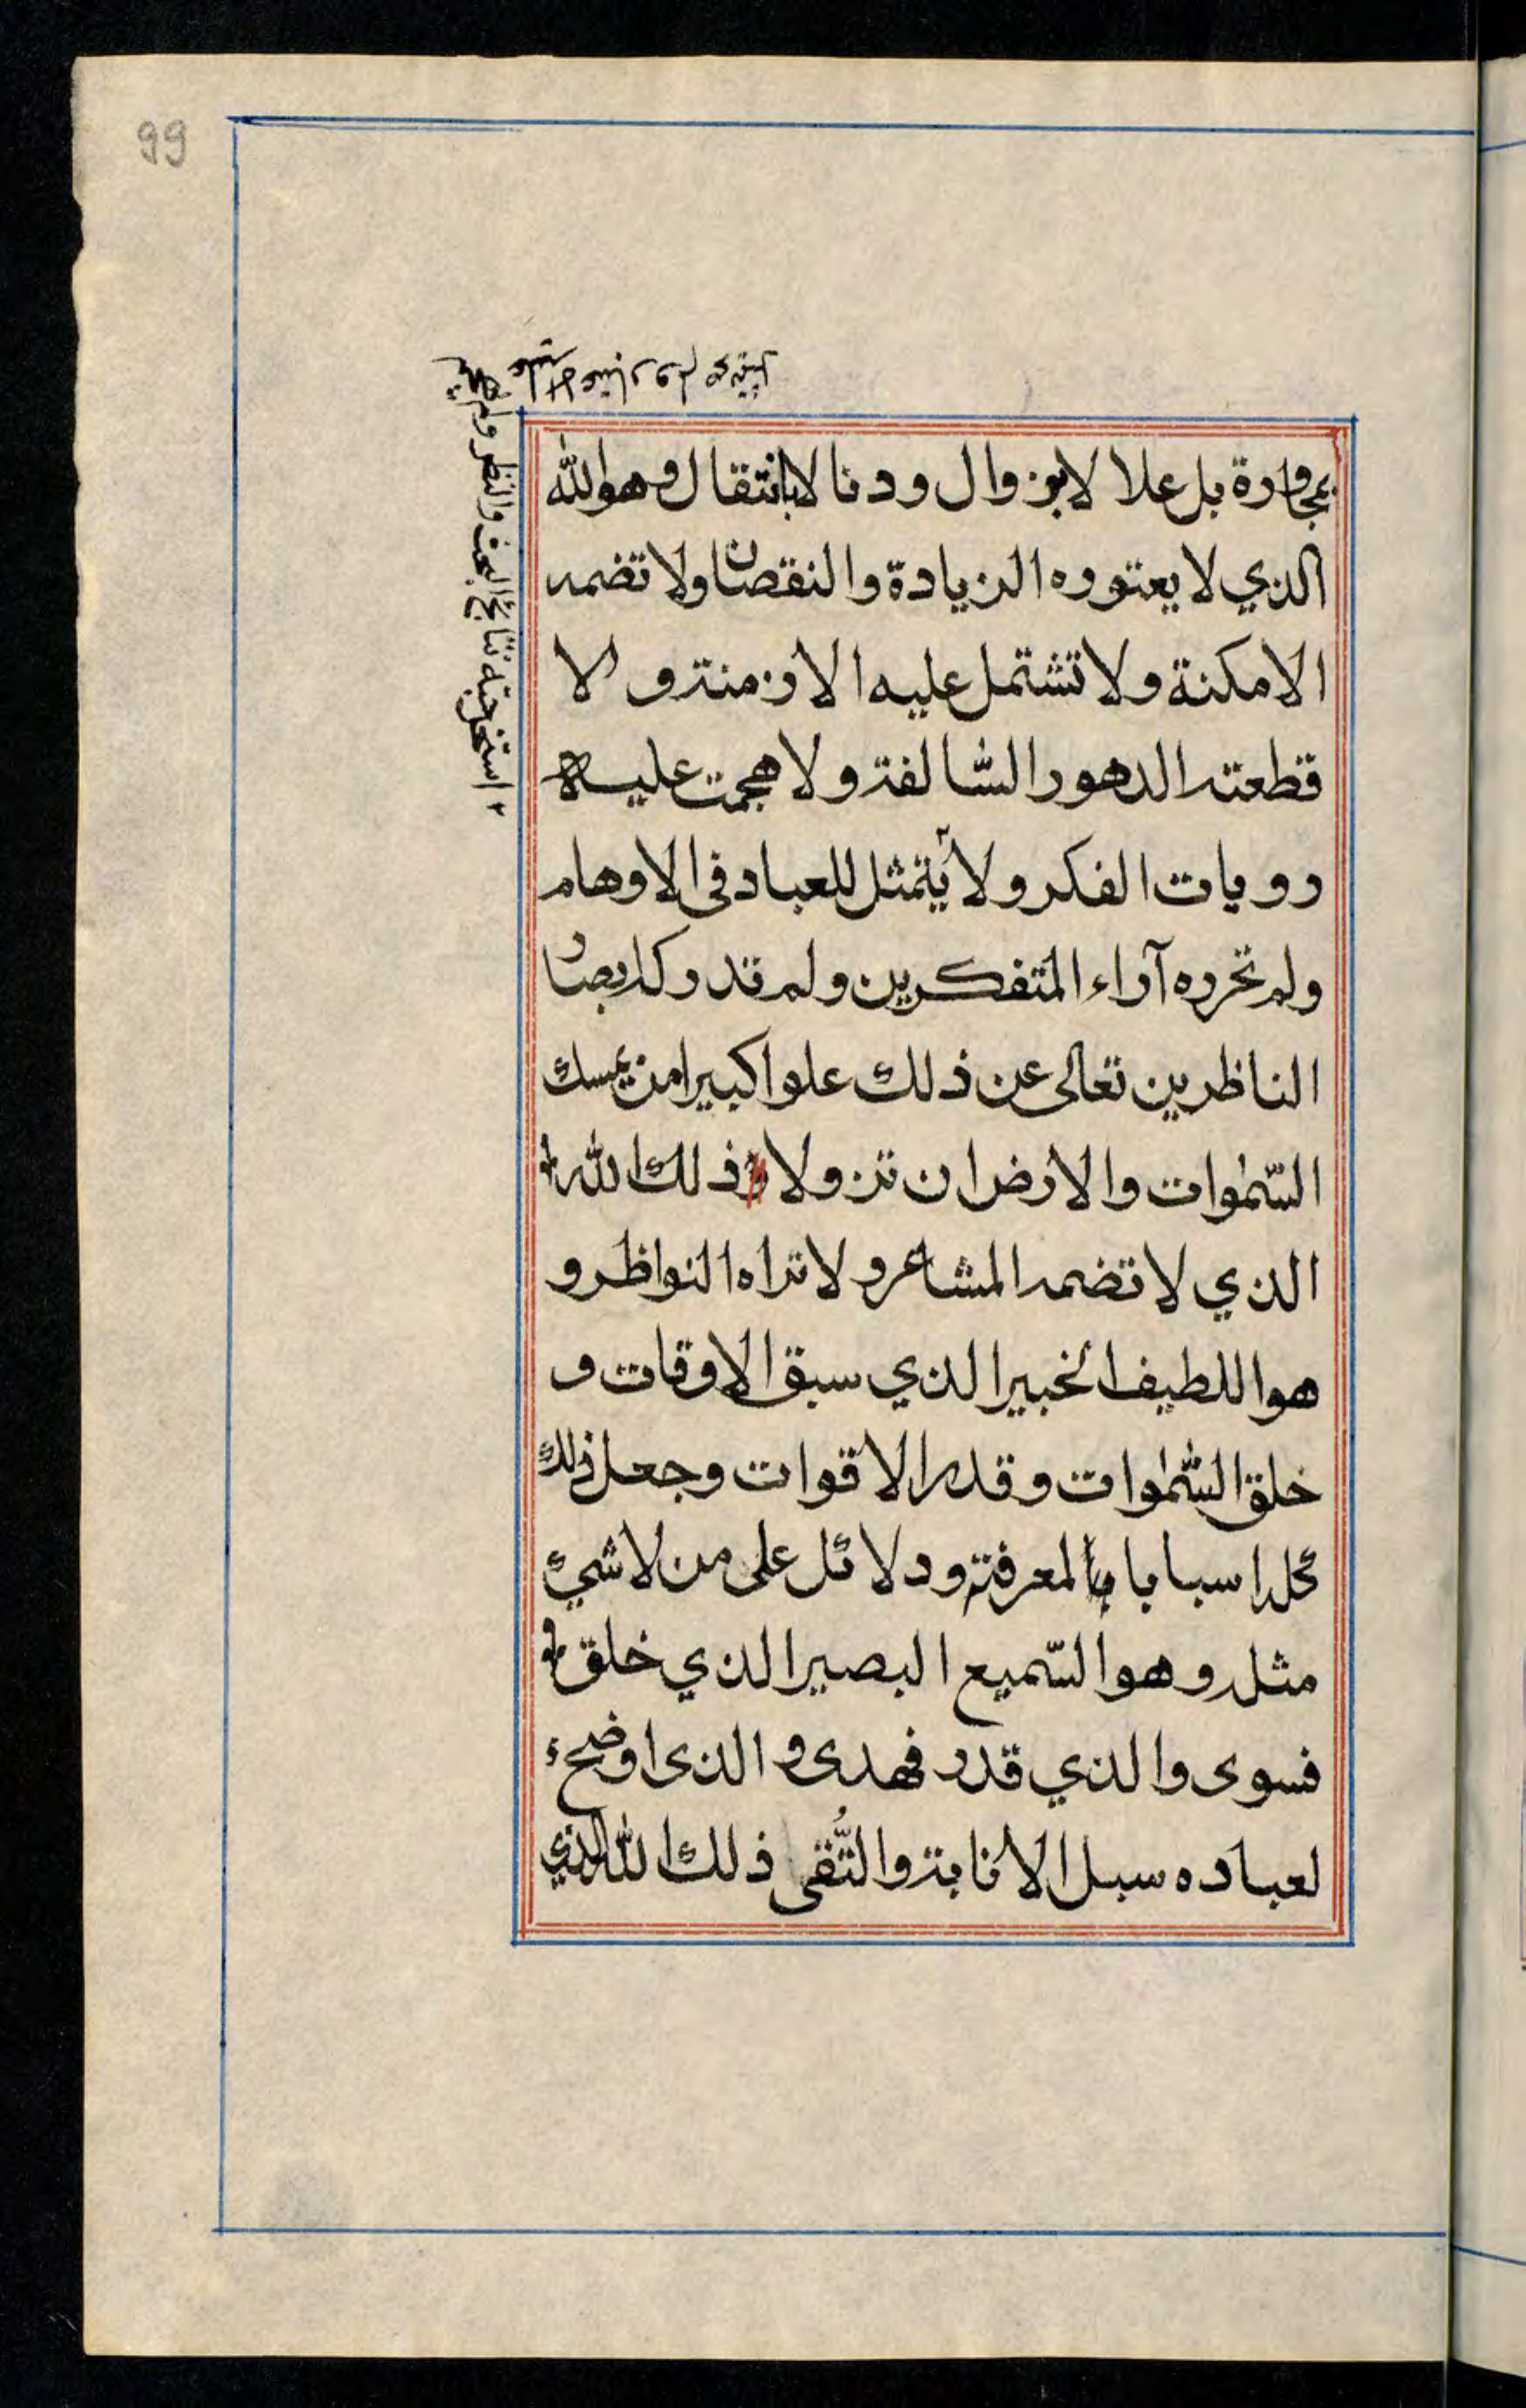 99
بمجاورة بل علا لابزوال ودنا لابانتقال وهو الله
الذي لا يعتوره الزيادة والنقصان ولا تضمه
الامكنة ولا تشتمل عليه الازمنة و لا
قطعته الدهور السّالفة ولا هجمت عليه
رويات الفكر ولا يتمثل للعباد فى الاوهام
ولم تحرره آراء المتفكرين ولم تدركه ابصار
الناظرين تعالى عن ذلك علوا كبيرا من يمسك
السّموات والارض ان تزولا ذلك الله
الذي لا تضمه المشاعر ولا تراه النواظر و
هو اللطيف الخبير الذي سبق الاوقات و
خلق السّموات وقدر الاقوات وجعل ذلك
كله اسبابا لمعرفته ودلائل على من لا شيئ
مثله وهو السّميع البصير الذي خلق
فسوى والذي قدر فهدى و الذى اوضح
لعباده سبل الانابة والتُّقى ذلك الله الذي
استخرجته نتائج البحث والنظر ولم
الاعتبار ولم